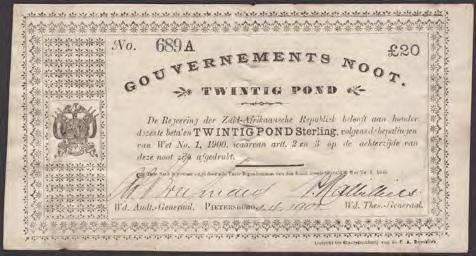 No. 689A £20
GOUVERNEMENTS NOOT.
TWINTIG POND
De Regeering der Zuid-Afrikaansche Republiek belooft aan houder
dezes te betalen TWINTIG POND Sterling, volgens de bepalingen
van Wet No. 1, 1900, waarvan artt. 2 en 3 op de achterzijde van
deze noot zijn afgedrukt.
Wd. Audt.-Generaal. PIETERSBURG, 1901 Wd. Thes.-Generaal.